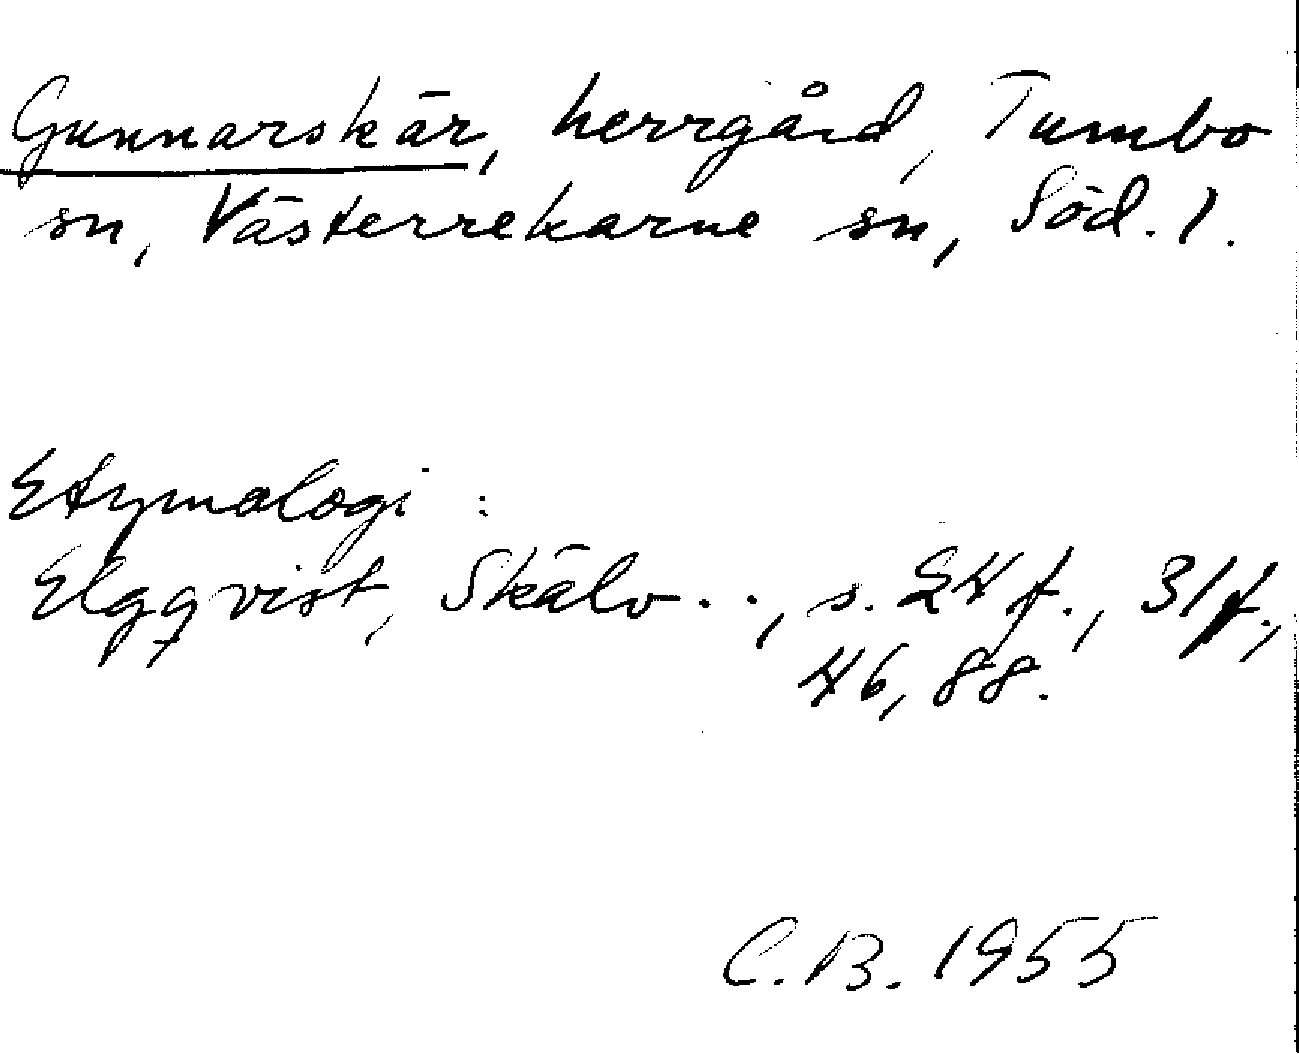 Gunnarskär, herrgård, Tumbo
sn, Västerrekarne sn, Söd. l.
Etymologi :
Elgqvist, Skälv . . ., s. 24 f., 31 f.,
46, 88.
C. B. 1955